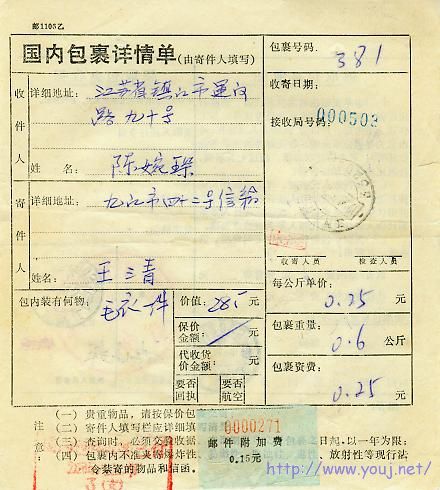 邮1105乙
国内包裹详情单(由寄件人填写)
包裹号码: 381
收件人
详细地址: 江苏省镇江市运河
路九十号
姓名: 陈婉琛
收寄日期:
接收局号码: 000503
寄件人
详细地址: 九江市四十二号信箱
姓名: 王三青
收寄人员 检查人员
包内装有何物: 毛衣一件
价值: 28.5元
保价金额: 元
代收货价金额: 元
要否回执
要否航空
每公斤单价: 0.25元
包裹重量: 0.6公斤
包裹资费: 0.25元
注意:
(一) 贵重物品,请按保价包
(二) 寄件人填写栏应详细填写清
(三) 查询时,必须交验收据, 包裹之日起,以一年为限;
(四) 包裹内不准夹寄爆炸性、 性、放射性等现行法
令禁寄的物品和信函。
0000271
邮件附加费
0.15元
http://www.youj.net/